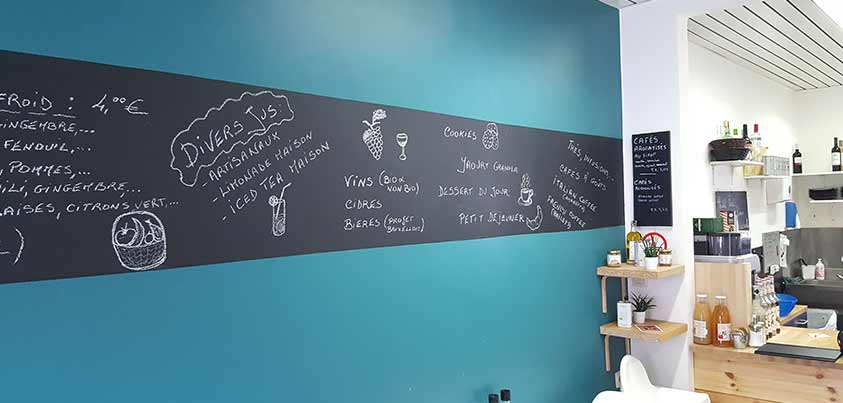 FROID : 4,00 €
GINGEMBRE,...
FENOUIL,...
, POMMES,...
ILI, GINGEMBRE...
AISES, CITRONS VERT,...
DIVERS JUS:
- ARTISANAUX
- LIMONADE MAISON
- ICED TEA MAISON
VINS (BIO &
NON BIO)
CIDRES
BIERES (PROJET
COOKIES
YAOURT GRANOLA
DESSERT DU JOUR
PETIT DEJEUNER
THÉS, INFUSIONS
CAFES & GOÛTS
ITALIAN COFFEE
FRENCH COFFEE
CAFÉS
AROMATISÉS
CAFÉS